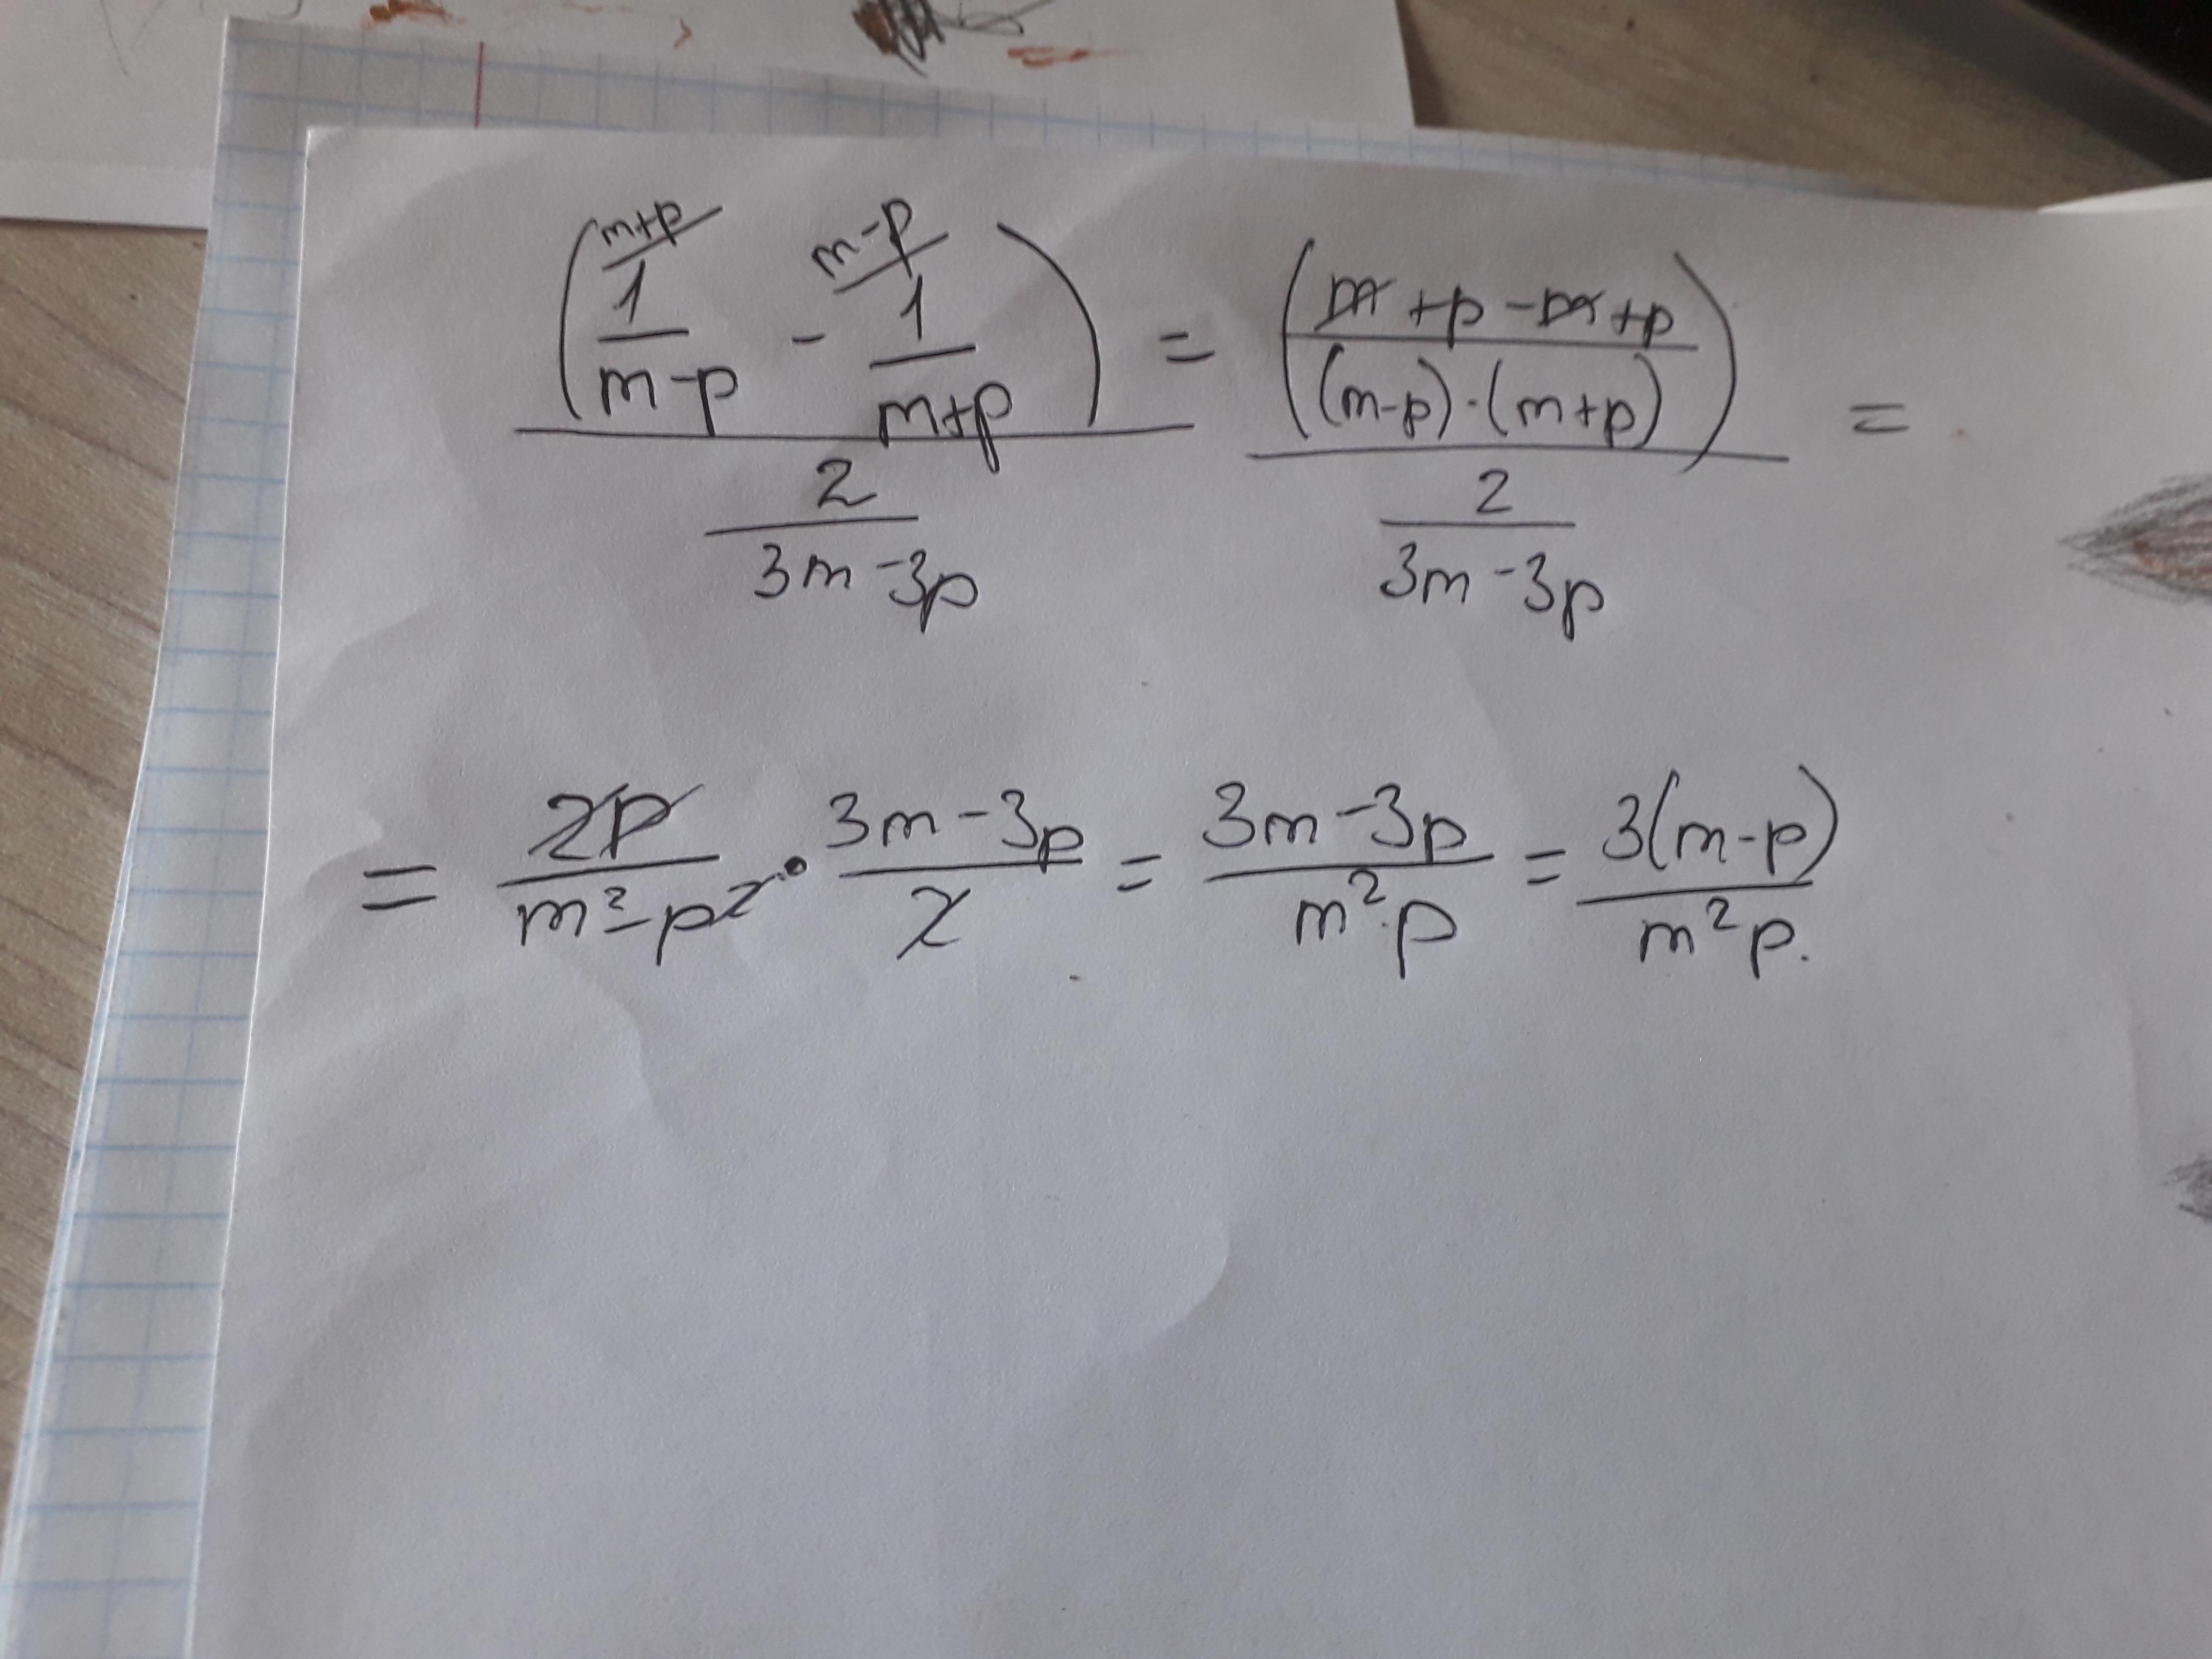 (m+p/ 1/(m-p) - m-p/ 1/(m+p)) / (2/(3m-3p)) = ((m+p-m+p)/((m-p)·(m+p))) / (2/(3m-3p)) =
= 2p/(m²-p²) · (3m-3p)/2 = (3m-3p)/(m²·p) = 3(m-p)/(m²p).